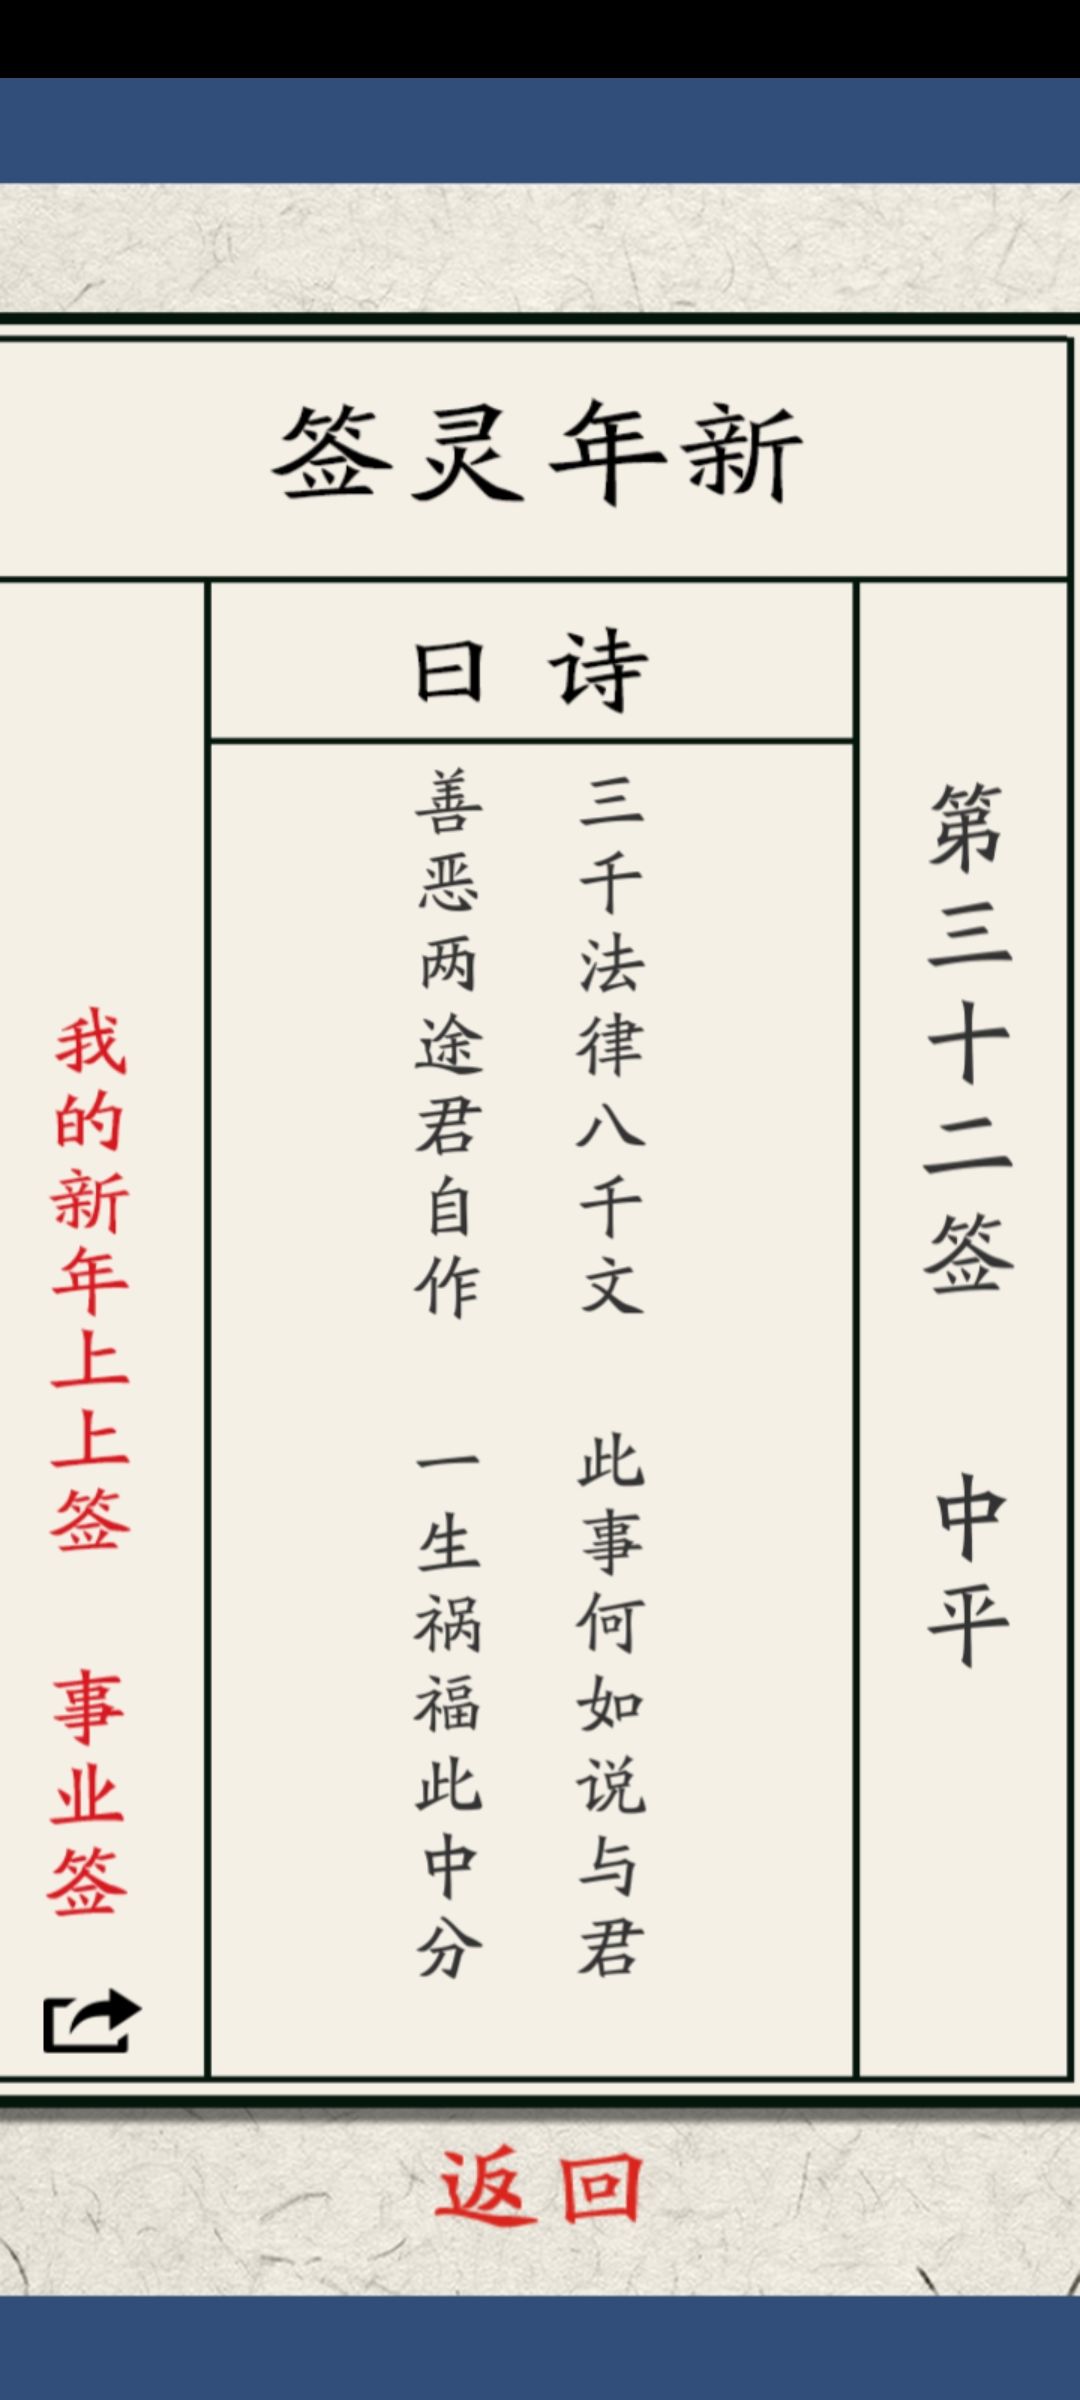 新年灵签
第三十二签 中平
诗曰
三千法律八千文 此事何如说与君
善恶两途君自作 一生祸福此中分
我的新年上上签 事业签
返回